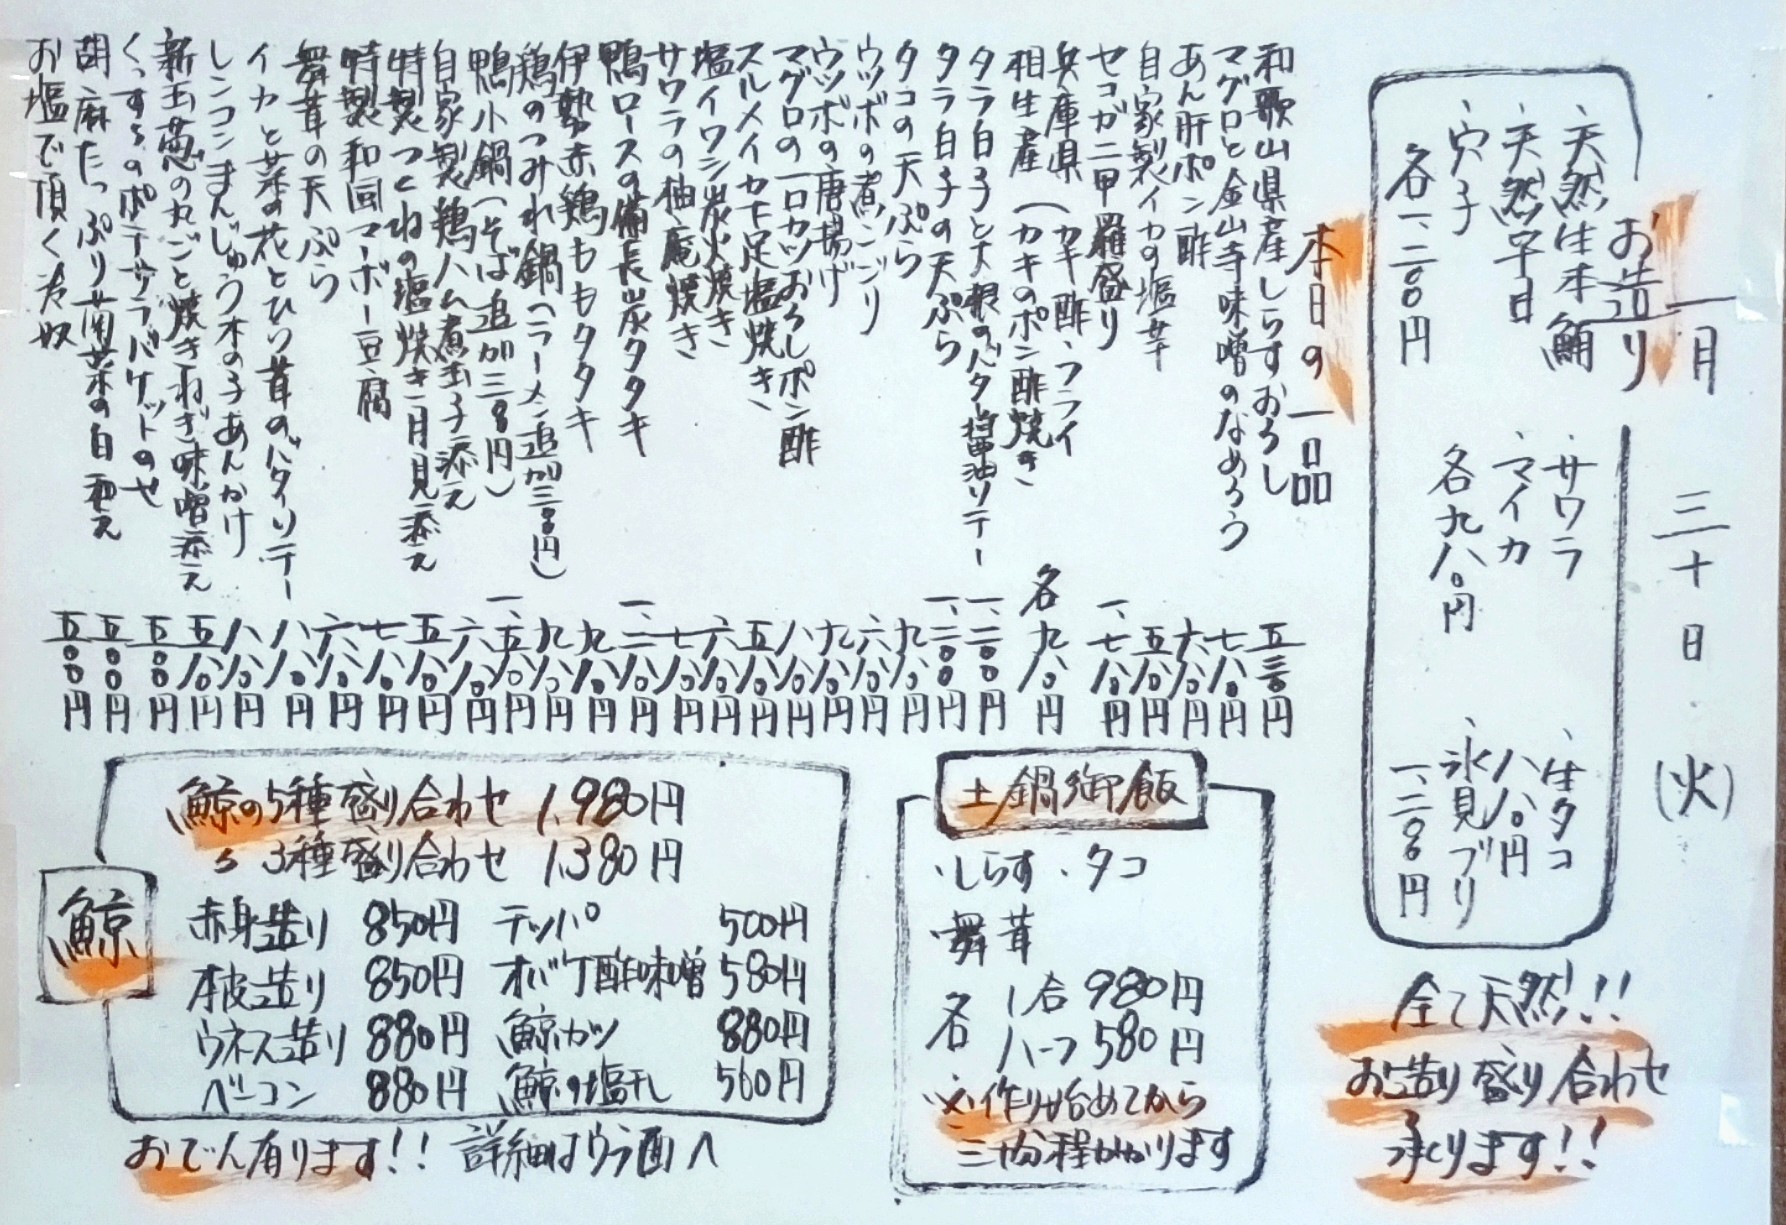 一月 三十日 (火)
お造り
、天然生本鮪
、天然平目
、穴子
各一、二〇〇円
、サワラ
、マイカ
各九八〇円
、生タコ
八八〇円
、氷見ブリ
一、二〇〇円
全て天然!!
お造り盛り合わせ
承ります!!
本日の一品
和歌山県産しらすおろし 五三〇円
マグロと金山寺味噌のなめろう 七八〇円
あん肝ポン酢 六八〇円
自家製イカの塩辛 五八〇円
セコガニ甲羅盛り 一、七八〇円
兵庫県 (カキ酢・フライ
相生産 (カキのポン酢焼き 各九八〇円
タラ白子と大根のバター醤油ソテー 一、二〇〇円
タラ白子の天ぷら 一、二〇〇円
タコの天ぷら 九八〇円
ウツボの煮こごり 六八〇円
ウツボの唐揚げ 九八〇円
マグロの一口カツおろしポン酢 八八〇円
スルメイカ下足塩焼き 五八〇円
塩イワシ炭火焼き 六八〇円
サワラの柚庵焼き 七八〇円
鴨ロースの備長炭タタキ 一、二八〇円
伊勢赤鶏ももタタキ 九八〇円
鶏のつみれ鍋(ラーメン追加三〇〇円) 九八〇円
鴨小鍋(そば追加三〇〇円) 一、五八〇円
自家製鶏ハム煮玉子添え 六八〇円
特製つくねの塩焼き月見添え 五八〇円
特製和風マーボー豆腐 七八〇円
舞茸の天ぷら 六八〇円
イカと菜の花とひら茸のバターソテー 八八〇円
レンコンまんじゅう木の子あんかけ 八八〇円
新玉葱の丸ごと焼きねぎ味噌添え 五八〇円
くっすぅのポテサラバケットのせ 五〇〇円
胡麻たっぷり菊菜の白和え 五〇〇円
お塩で頂く冷奴 五〇〇円
鯨
鯨の5種盛り合わせ 1,980円
〃 3種盛り合わせ 1,380円
赤身造り 850円 テッパ 500円
本皮造り 850円 オバケ酢味噌 580円
ウネス造り 880円 鯨カツ 880円
ベーコン 880円 鯨の塩干し 500円
おでん有ります!! 詳細はウラ面へ
土鍋御飯
・しらす ・タコ
・舞茸
各 1合 980円
ハーフ 580円
※作り始めてから
三十分程かかります